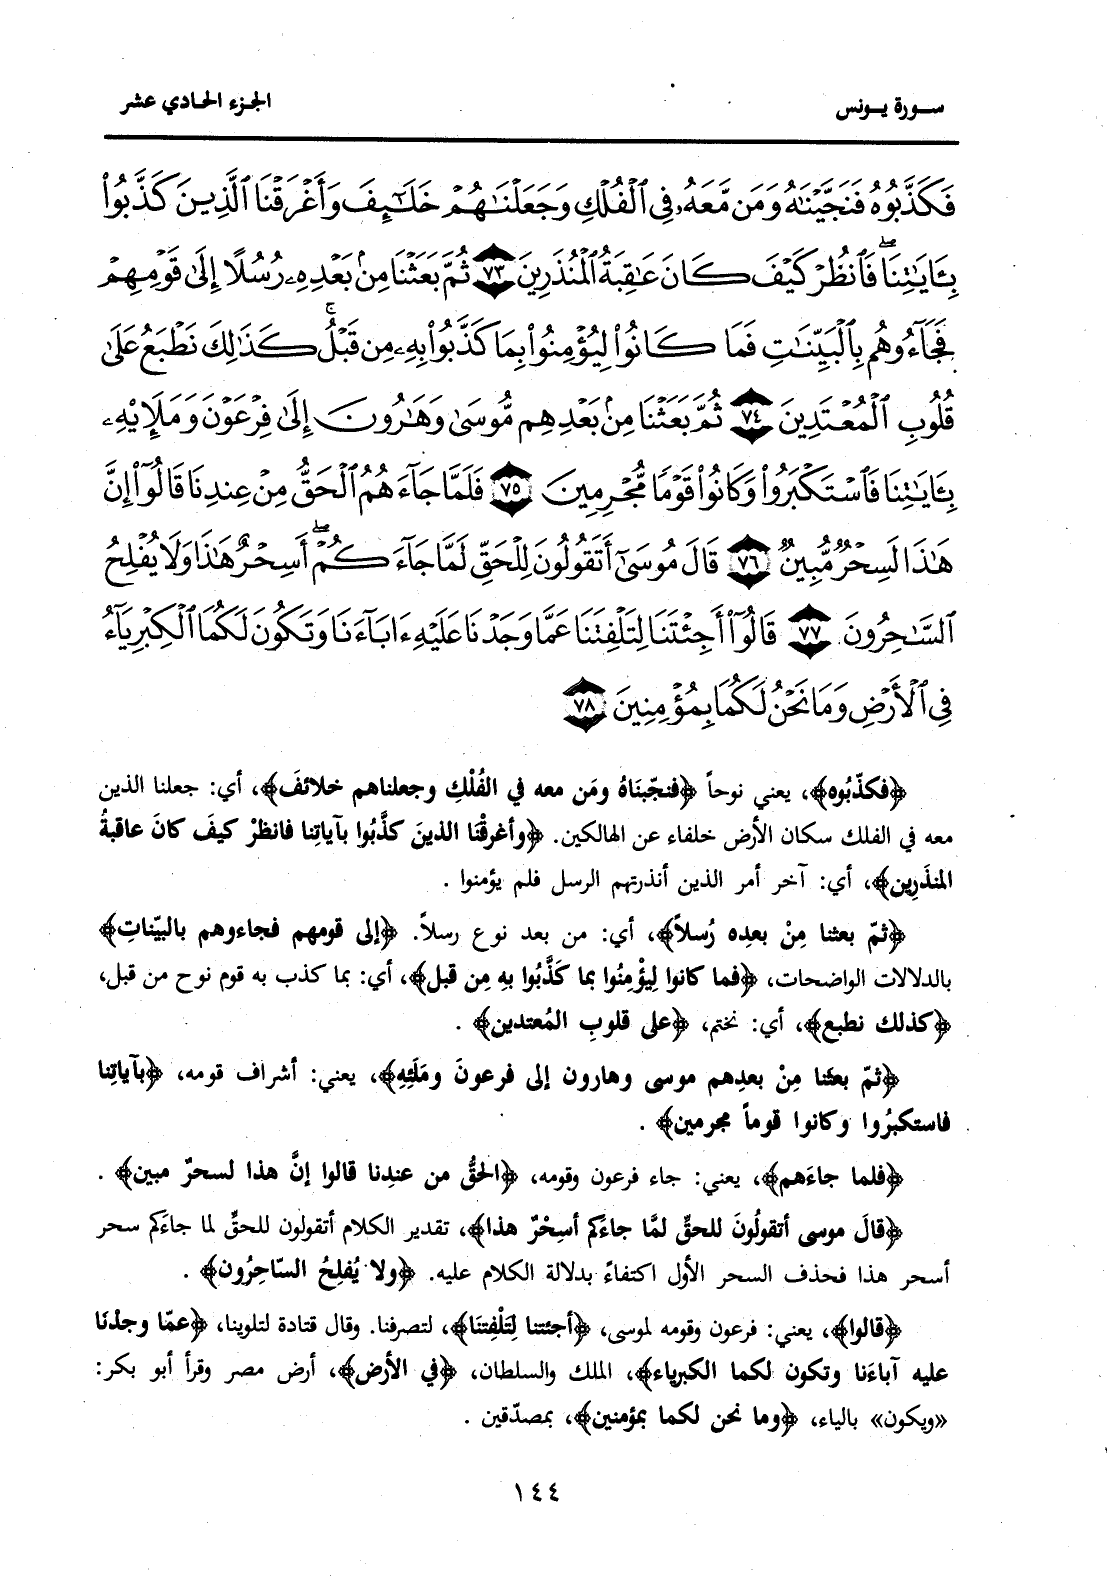 سورة يونس
الجزء الحادي عشر
فَكَذَّبُوهُ فَنَجَّيْنَٰهُ وَمَن مَّعَهُۥ فِى ٱلْفُلْكِ وَجَعَلْنَٰهُمْ خَلَٰٓئِفَ وَأَغْرَقْنَا ٱلَّذِينَ كَذَّبُوا۟
بِـَٔايَٰتِنَا ۖ فَٱنظُرْ كَيْفَ كَانَ عَٰقِبَةُ ٱلْمُنذَرِينَ ٧٣ ثُمَّ بَعَثْنَا مِنۢ بَعْدِهِۦ رُسُلًا إِلَىٰ قَوْمِهِمْ
فَجَآءُوهُم بِٱلْبَيِّنَٰتِ فَمَا كَانُوا۟ لِيُؤْمِنُوا۟ بِمَا كَذَّبُوا۟ بِهِۦ مِن قَبْلُ ۚ كَذَٰلِكَ نَطْبَعُ عَلَىٰ
قُلُوبِ ٱلْمُعْتَدِينَ ٧٤ ثُمَّ بَعَثْنَا مِنۢ بَعْدِهِم مُّوسَىٰ وَهَٰرُونَ إِلَىٰ فِرْعَوْنَ وَمَلَإِي۟هِۦ
بِـَٔايَٰتِنَا فَٱسْتَكْبَرُوا۟ وَكَانُوا۟ قَوْمًا مُّجْرِمِينَ ٧٥ فَلَمَّا جَآءَهُمُ ٱلْحَقُّ مِنْ عِندِنَا قَالُوٓا۟ إِنَّ
هَٰذَا لَسِحْرٌ مُّبِينٌ ٧٦ قَالَ مُوسَىٰٓ أَتَقُولُونَ لِلْحَقِّ لَمَّا جَآءَكُمْ ۖ أَسِحْرٌ هَٰذَا وَلَا يُفْلِحُ
ٱلسَّٰحِرُونَ ٧٧ قَالُوٓا۟ أَجِئْتَنَا لِتَلْفِتَنَا عَمَّا وَجَدْنَا عَلَيْهِ ءَابَآءَنَا وَتَكُونَ لَكُمَا ٱلْكِبْرِيَآءُ
فِى ٱلْأَرْضِ وَمَا نَحْنُ لَكُمَا بِمُؤْمِنِينَ ٧٨
﴿فكذّبُوه﴾، يعني نوحاً ﴿فنجّينَاهُ ومَن معه في الفُلْكِ وجعلناهم خلائفَ﴾، أي: جعلنا الذين
معه في الفلك سكان الأرض خلفاء عن الهالكين. ﴿وأغرقْنَا الذينَ كذَّبُوا بآياتِنا فانظرْ كيفَ كانَ عاقبةُ
المنذَرِين﴾، أي: آخر أمر الذين أنذرتهم الرسل فلم يؤمنوا .
﴿ثمّ بعثنا مِنْ بعدِه رُسلاً﴾، أي: من بعد نوع رسلاً. ﴿إلى قومهم فجاءوهم بالبيّناتِ﴾
بالدلالات الواضحات، ﴿فما كانوا لِيؤْمِنُوا بما كَذَّبُوا بهِ مِن قبل﴾، أي: بما كذب به قوم نوح من قبل،
﴿كذلك نطبع﴾، أي: نختم، ﴿على قلوبِ المُعتدين﴾ .
﴿ثمّ بعثنا مِنْ بعدِهم موسى وهارون إلى فرعونَ ومَلَئِهِ﴾، يعني: أشراف قومه، ﴿بآياتِنا
فاستكبرُوا وكانوا قوماً مجرمين﴾ .
﴿فلما جاءَهم﴾، يعني: جاء فرعون وقومه، ﴿الحقُّ من عندِنا قالوا إنَّ هذا لسحرٌ مبين﴾ .
﴿قالَ موسى أتقولُونَ للحقِّ لمَّا جاءَكم أسِحْرٌ هذا﴾، تقدير الكلام أتقولون للحقِّ لما جاءَكم سحر
أسحر هذا فحذف السحر الأول اكتفاءً بدلالة الكلام عليه. ﴿ولا يُفلحُ السّاحِرُون﴾ .
﴿قالوا﴾، يعني: فرعون وقومه لموسى، ﴿أجئتنا لِتَلْفِتنَا﴾، لتصرفنا. وقال قتادة لتلوينا، ﴿عمّا وجدْنَا
عليه آباءَنا وتكون لكما الكبرياء﴾، الملك والسلطان، ﴿في الأرض﴾، أرض مصر وقرأ أبو بكر:
«ويكون» بالياء، ﴿وما نحن لكما بمؤمنين﴾، بمصدّقين .
١٤٤